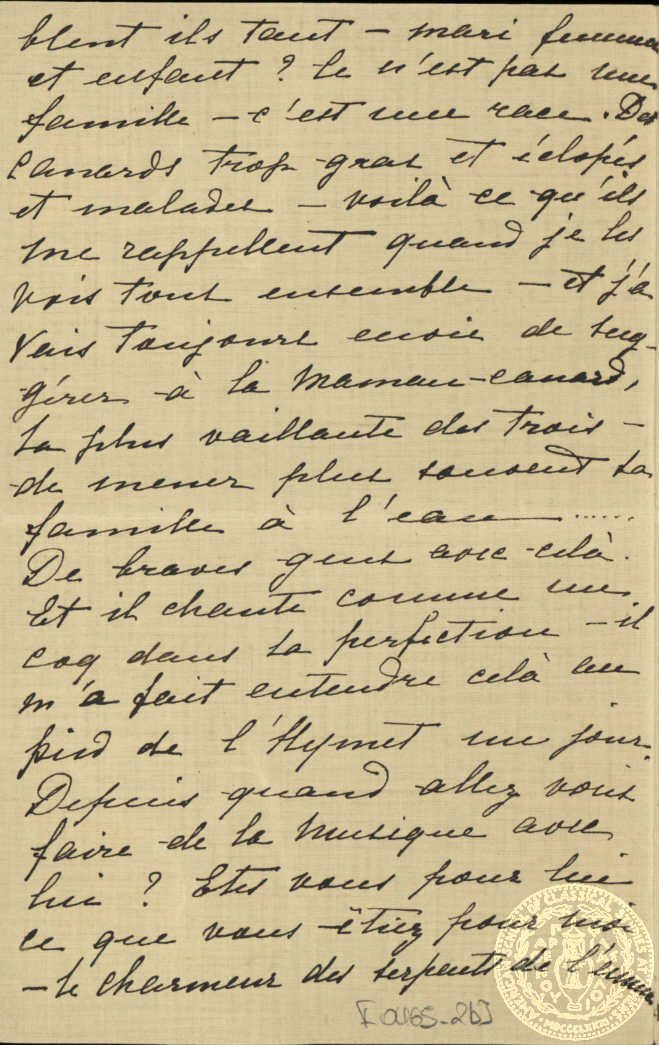 blent ils tant – mari femme
et enfant ? Ce n'est pas une
famille – c'est une race. Des
canards trop gras et éclopés
et malades – voilà ce qu'ils
me rappellent quand je les
vois tout ensemble – et j'a
vais toujours envie de sug-
gérer à la Maman-canard,
la plus vaillante des trois –
de mener plus souvent sa
famille à l'eau ......
De braves gens avec celà.
Et il chante comme un
coq dans la perfection – il
m'a fait entendre celà au
pied de l'Hymet un jour.
Depuis quand allez vous
faire de la musique avec
lui ? Etes vous pour lui
ce que vous étiez pour moi
– le charmeur des serpents de